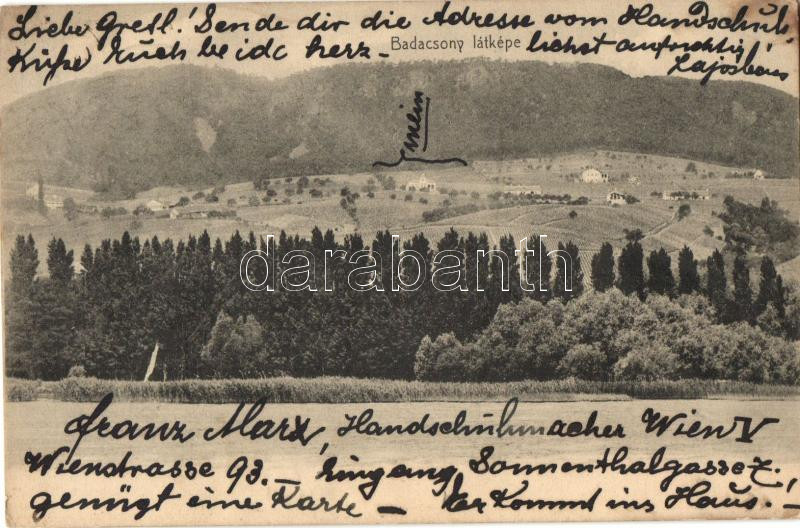 Liebe Gretl! Sende dir die Adresse vom Handschuh.
Küße Euch beide herz-
lichst aufrichtig
Lajosbaus
Badacsony látképe
mein
darabanth
Franz Marx, Handschuhmacher Wien V
Wienstrasse 93. – Eingang Sonnenthalgasse 2.
genügt eine Karte – Er kommt ins Haus. –